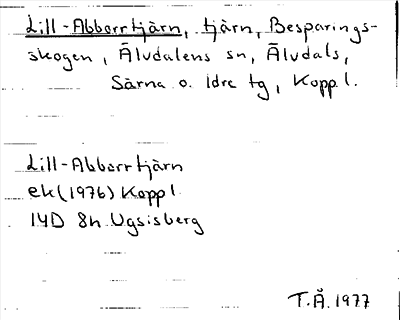 Lill-Abborrtjärn, tjärn, Besparings-
skogen, Älvdalens sn, Älvdals,
Särna o. Idre tg, Koppl.
Lill-Abborrtjärn
ek (1976) Koppl
14D 8h Ugsisberg
T.Å. 1977